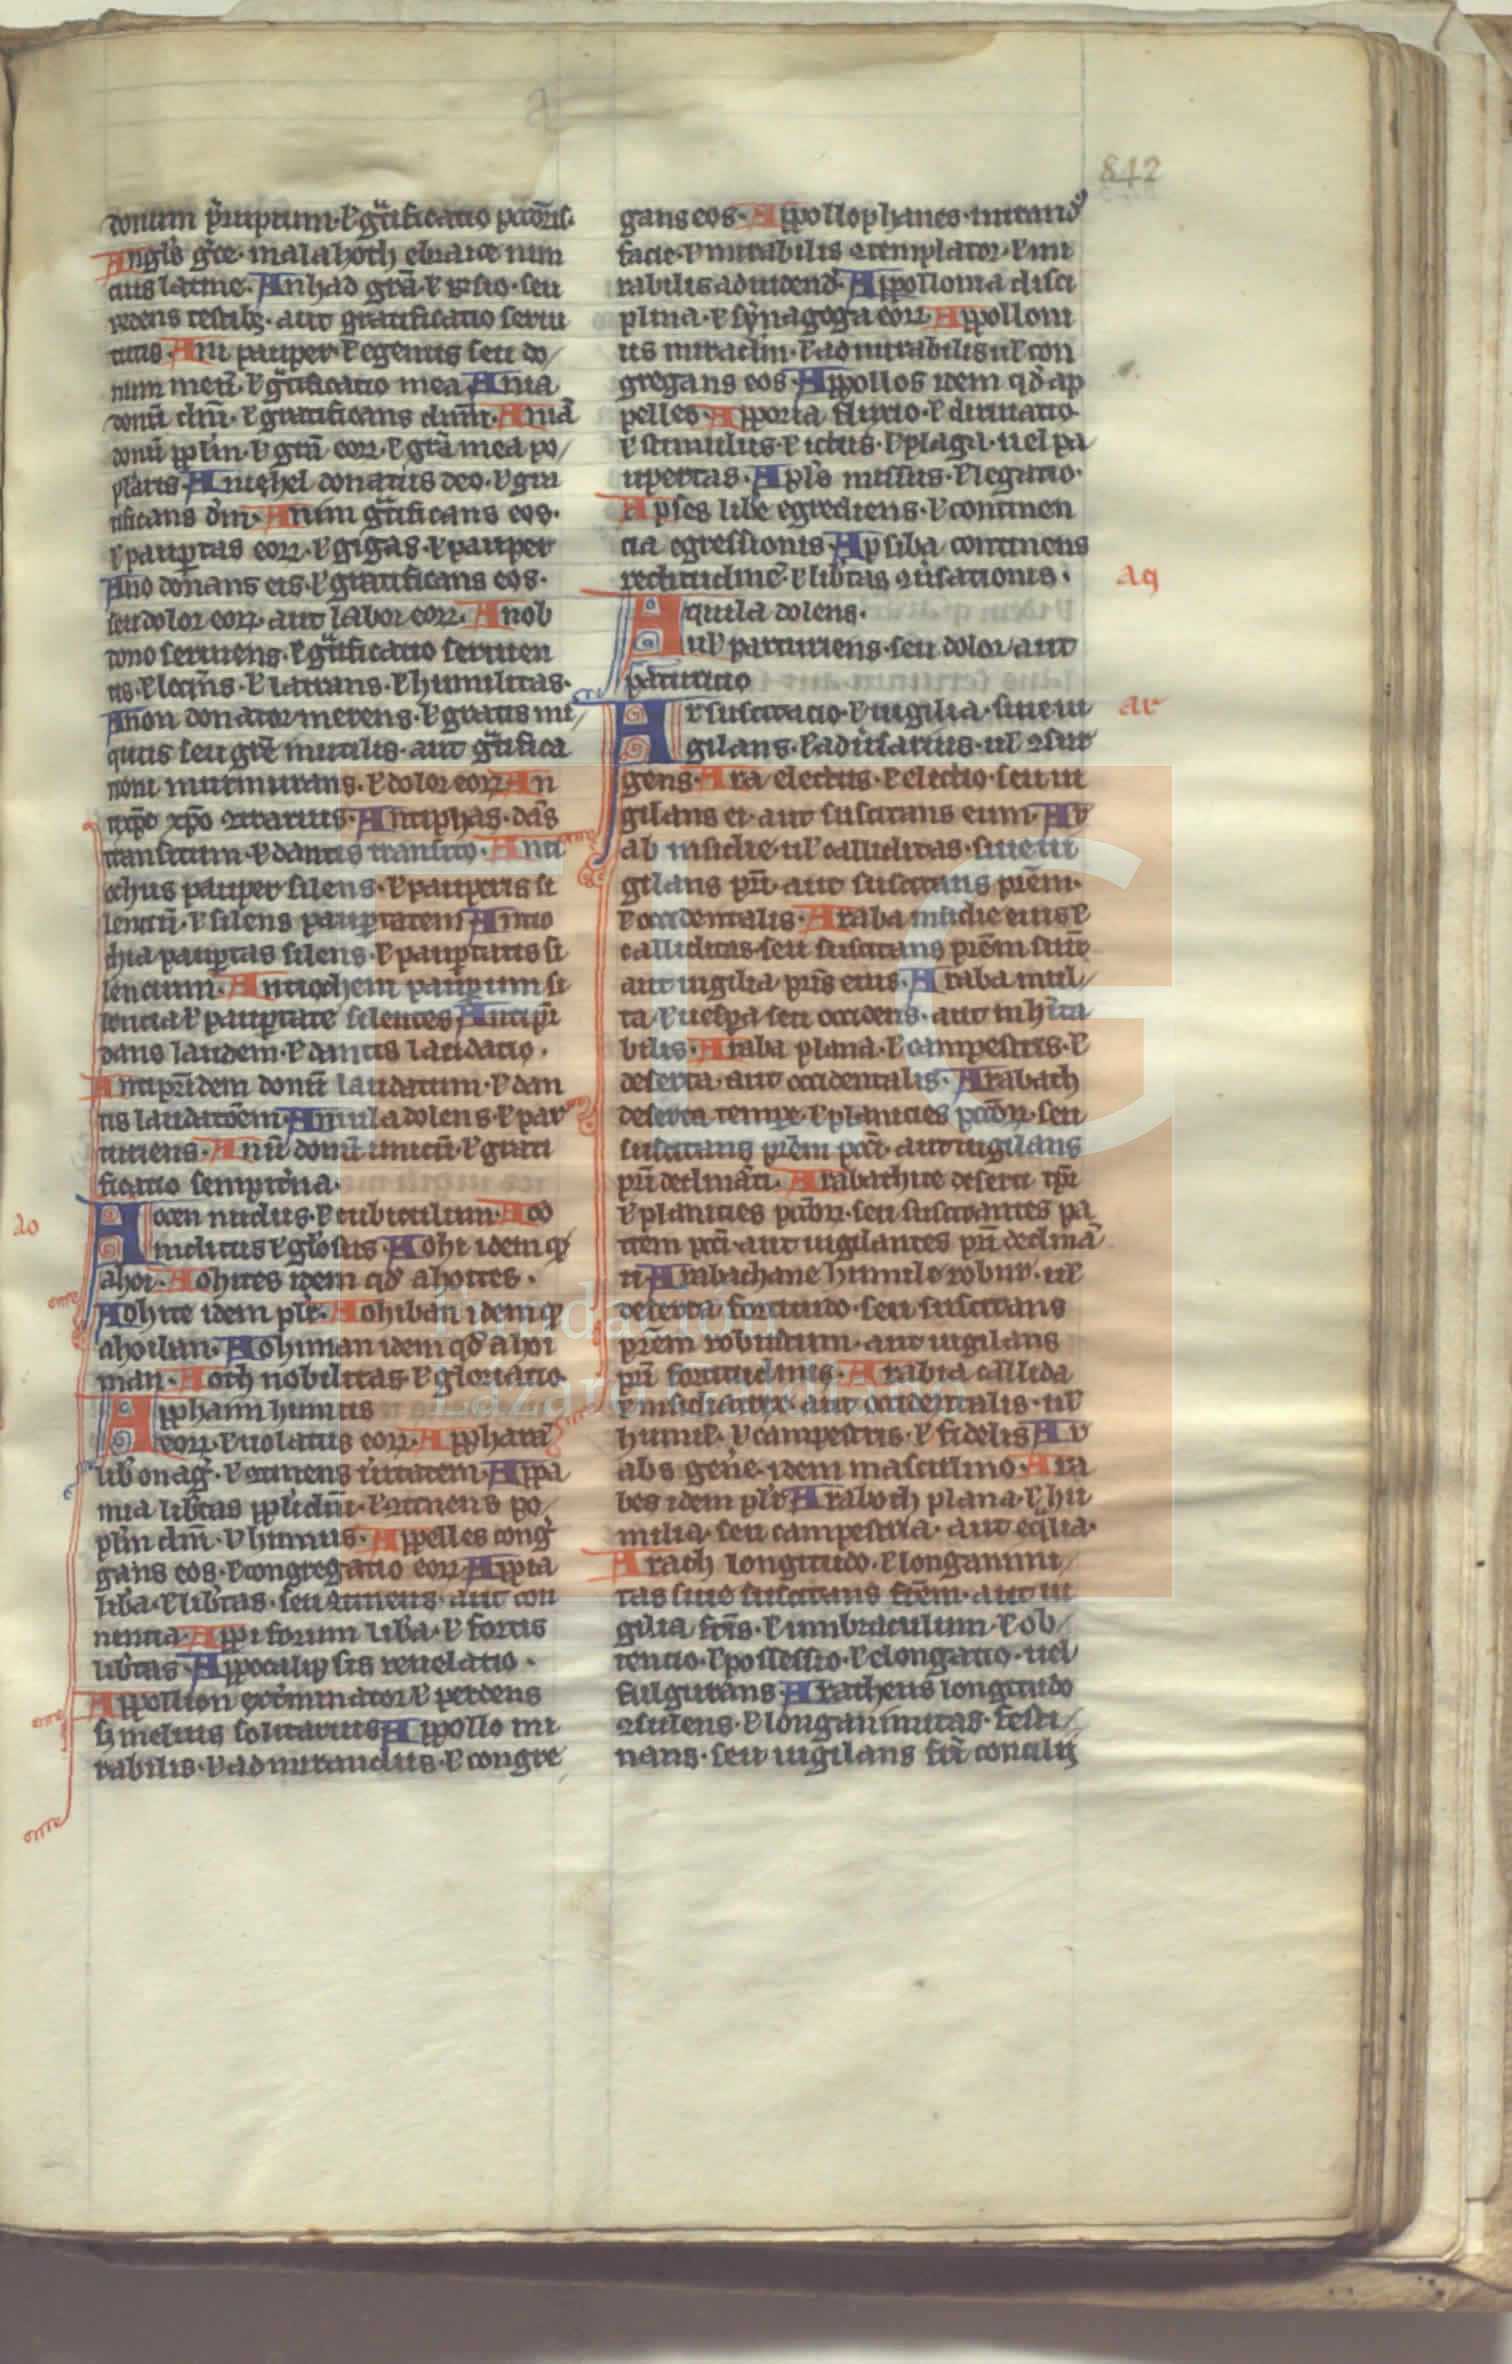 842
donum p̃ruptum · ł gᵃtificatio pctōris ·
Angls̃ gr̃ce · malahoth ebraice nun
cius latine · Anhad grã · ł visio · seu
redens testib; · aut gratificatio seruitutis
tutis · Ani pauper · ł egenus seu do
num meũ · ł gᵃtificatio mea Ania
donũ dñi · ł gratificans dñm · Aniã
donũ ppl̃i · ł grã eoꝝ · ł grã mea po
pularis · Aniehel donatus deo · ł gra
tificans dm̃ · Anim gᵃtificans eos ·
ł paup̃tas eoꝝ · ł gigas · ł pauper
Ano donans eis · ł gratificans eos ·
seu dolor eoꝝ · aut labor eoꝝ · Anob
dono seruiens · ł gᵃtificatio seruien
tis · ł loq̃ns · ł latrans · ł humilitas ·
Anon donator merens · ł gratis ini
quus seu gr̃e inutilis · aut gᵃtifica
tioni murmurans · ł dolor eoꝝ An
tixp̃c xp̃o ↄtrarius · Antiphas · dãs
transitum · ł dantis transito · Anti
ochus pauper silens · ł pauperis si
lentiũ · ł silens paup̃tatem Antio
chia paup̃tas silens · ł paup̃tatis si
lentium · Antiochem paup̃um si
lentia ł paup̃tate silentes Antipr̃
dans laudem · ł dantis laudatio ·
Antipr̃dem donũ laudatum · ł dan
tis laudatōem Anniula dolens · ł par
turiens · Anũ donũ unicũ · ł grati
ficatio sempit̃na ·
ao
Aoen nudus · ł cubiculum · Aod
inclitus ł gl̃osus · Aohi idem qđ
ahoi · Aohites idem qđ ahoites ·
Aohite idem plr̃ · Aohiban idem qđ
ahoiban · Aohiman idem qđ ahoi
man · Aoth nobilitas · ł gloriatio ·
Apphaim humus
eoꝝ · ł uolatus eoꝝ · Appham̃
lib̃ onag̃ · ł ↄtinens ũtutem · Appa
mia lib̃tas ppłi dñi · ł ↄtinens po
plm̃ dm̃ · ł humus · Appelles cong̃
gans eos · ł congregatio eoꝝ Appia
lib̃a · ł lib̃tas · seu ↄtinens · aut con
nentia · Appi forum lib̃a · ł fortis
lib̃tas · Appocalipsis reuelatio ·
Appollion exterminator ł perdens
sĩ melius solitarius Appollo mi
rabilis · ł admirandus · ł congre
gans eos · Appollophanes · mirand
facie · ł mirabilis ↄtemplator · ł mi
rabilis ad uidend̃ · Appollonia disci
plina · ł synagoga eoꝝ Appolloni
us miracłm · ł admirabilis uł con
gregans eos Appollos idem qđ ap
pelles · Apporia fluuio · ł diriuatio
ł stimulus · ł ictus · ł plaga · uel pa
upertas · Apl̃s missus · ł legatio ·
Apses libe egrediens · ł continen
tia egressionis · Apsiba continens
rectitudinē · ł lib̃tas ↄũsationis ·
aq
Aquila dolens ·
uł parturiens · seu dolor aut
p̃turitio
ar
Ar suscitatio · ł uigilia · siue ui
gilans · ł aduũsarius · uł ↄsur
gens · Ara electus · ł electio · seu ui
gilans ei · aut suscitans eum · Ar
ab insidie · uł calliditas · siue ui
gilans pr̃i · aut suscitans prẽm ·
ł occidentalis · Araba insidie eius ł
calliditas · seu suscitans prẽm suũ
aut uigilia pr̃is eius · Araba mul
ta · ł uespa seu occidens · aut inhĩta
bilis · Araba plana · ł campestris · ł
deserta · aut occidentalis · Arabach
deserta tempe · ł planicies pctōꝝ · seu
suscitans prẽm pctĩ · aut uigilans
pr̃i declinãti · Arabachite deserti tpr̃
ł planicies pctōꝝ · seu suscitantes pa
trem pctĩ · aut uigilantes pr̃i declinã
ti Arabachane humile robur · uł
deserta fortitudo · seu suscitans
prẽm robustum · aut uigilans
pr̃i fortitudinis · Arabia callida
ł insidiatrix · aut occidentalis · uł
humił · ł campestris · ł fidelis Ar
abs geñe · idem masculino · Ara
bes idem plr̃ Araboth plana · ł hu
milia · seu campestria · aut eq̃lia ·
Arach longitudo · ł longanimi
tas siue suscitans fr̃em · aut ui
gilia fr̃is · ł umbraculum · ł ob
tentio · ł possessio · ł elongatio · uel
fulgurans Aracheus longitudo
ↄsulens · ł longanimitas · festi
nans · seu uigilans fr̃i concilii